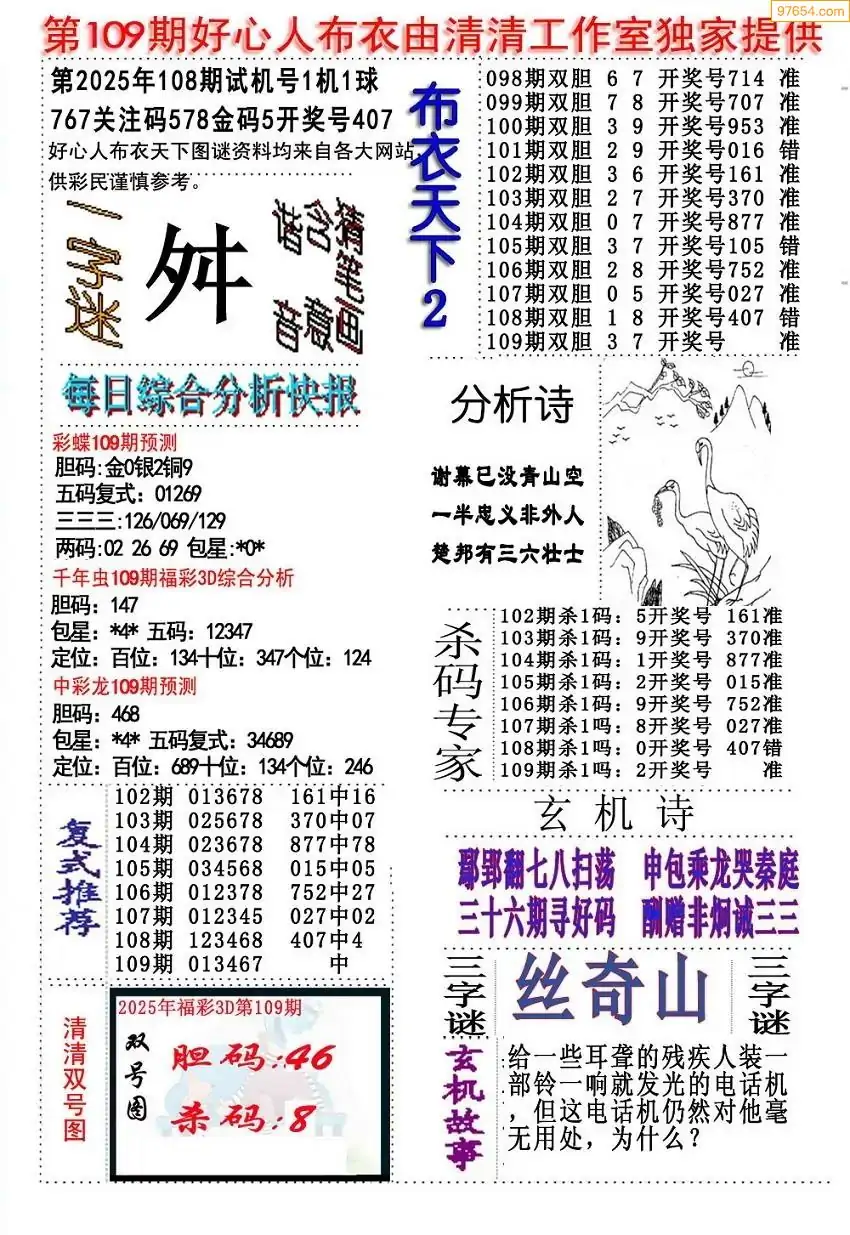 97654.com
第109期好心人布衣由清清工作室独家提供
第2025年108期试机号1机1球
767关注码578金码5开奖号407
好心人布衣天下图谜资料均来自各大网站,
供彩民谨慎参考。
一字迷
舛
猜笔画
含意
谐音
布衣天下2
098期双胆 6 7 开奖号714 准
099期双胆 7 8 开奖号707 准
100期双胆 3 9 开奖号953 准
101期双胆 2 9 开奖号016 错
102期双胆 3 6 开奖号161 准
103期双胆 2 7 开奖号370 准
104期双胆 0 7 开奖号877 准
105期双胆 3 7 开奖号105 错
106期双胆 2 8 开奖号752 准
107期双胆 0 5 开奖号027 准
108期双胆 1 8 开奖号407 错
109期双胆 3 7 开奖号 准
每日综合分析快报
彩蝶109期预测
胆码:金0银2铜9
五码复式：01269
三三三:126/069/129
两码:02 26 69 包星:*0*
千年虫109期福彩3D综合分析
胆码：147
包星：*4* 五码：12347
定位：百位：134十位：347个位：124
中彩龙109期预测
胆码：468
包星：*4* 五码复式：34689
定位：百位：689十位：134个位：246
分析诗
谢幕已没青山空
一半忠义非外人
楚邦有三六壮士
杀码专家
102期杀1码：5开奖号 161准
103期杀1码：9开奖号 370准
104期杀1码：1开奖号 877准
105期杀1码：2开奖号 015准
106期杀1码：9开奖号 752准
107期杀1吗：8开奖号 027准
108期杀1吗：0开奖号 407错
109期杀1吗：2开奖号 准
复式推荐
102期 013678 161中16
103期 025678 370中07
104期 023678 877中78
105期 034568 015中05
106期 012378 752中27
107期 012345 027中02
108期 123468 407中4
109期 013467 中
玄机诗
鄢郢翻七八扫荡 申包乘龙哭秦庭
三十六期寻好码 酬赠非炯诚三三
三字谜
丝奇山
三字谜
清清双号图
2025年福彩3D第109期
双号图
胆码:46
杀码:8
玄机故事
给一些耳聋的残疾人装一
部铃一响就发光的电话机
，但这电话机仍然对他毫
无用处，为什么？